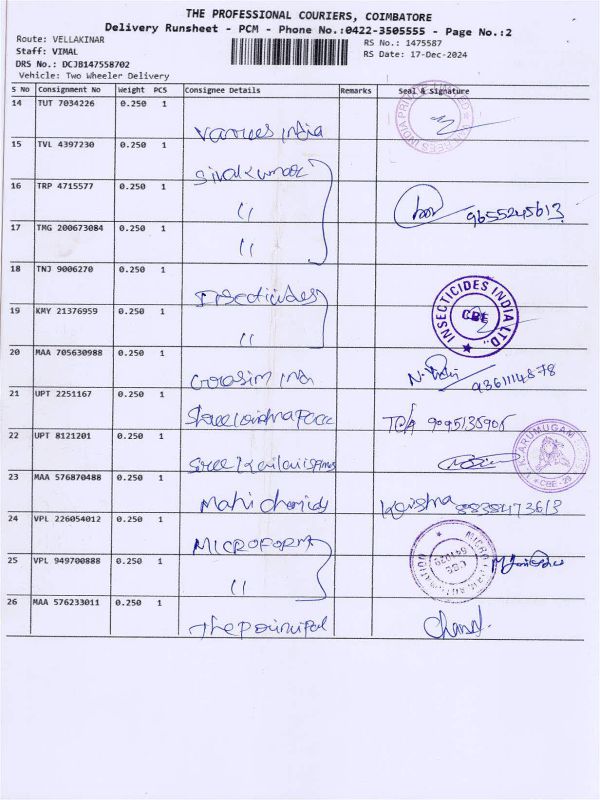 THE PROFESSIONAL COURIERS, COIMBATORE
Delivery Runsheet - PCM - Phone No.:0422-3505555 - Page No.:2
Route: VELLAKINAR
RS No.: 1475587
Staff: VIMAL
RS Date: 17-Dec-2024
DRS No.: DCJB147558702
Vehicle: Two Wheeler Delivery
S No Consignment No Weight PCS Consignee Details Remarks Seal & Signature
14 TUT 7034226 0.250 1
India
15 TVL 4397230 0.250 1
Sivakumar
16 TRP 4715577 0.250 1
" 9655245613
17 TMG 200673084 0.250 1
"
18 TNJ 9006270 0.250 1
Insecticides
INSECTICIDES INDIA LTD.,
CBE
19 KMY 21376959 0.250 1
"
20 MAA 705630988 0.250 1
Grasim Ind
21 UPT 2251167 0.250 1
9095135905
22 UPT 8121201 0.250 1
Sree
K.ARUMUGAM
CBE - 29
23 MAA 576870488 0.250 1
Mahi Krishna 8838473613
24 VPL 226054012 0.250 1
MICROFORM
25 VPL 949700888 0.250 1
"
26 MAA 576233011 0.250 1
The principal